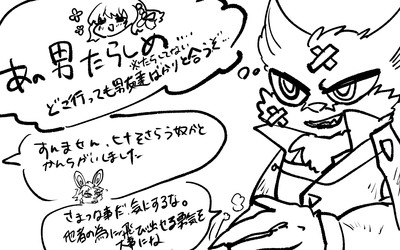 あの男たらしめ…
※たらしてない…
どこ行っても男友達ばかりと会うぞ…
すんません、ヒナをさらう奴かと
かんちがいしました
さまつな事だ気にするな。
他者の為に飛び出せる勇気を
大事にな